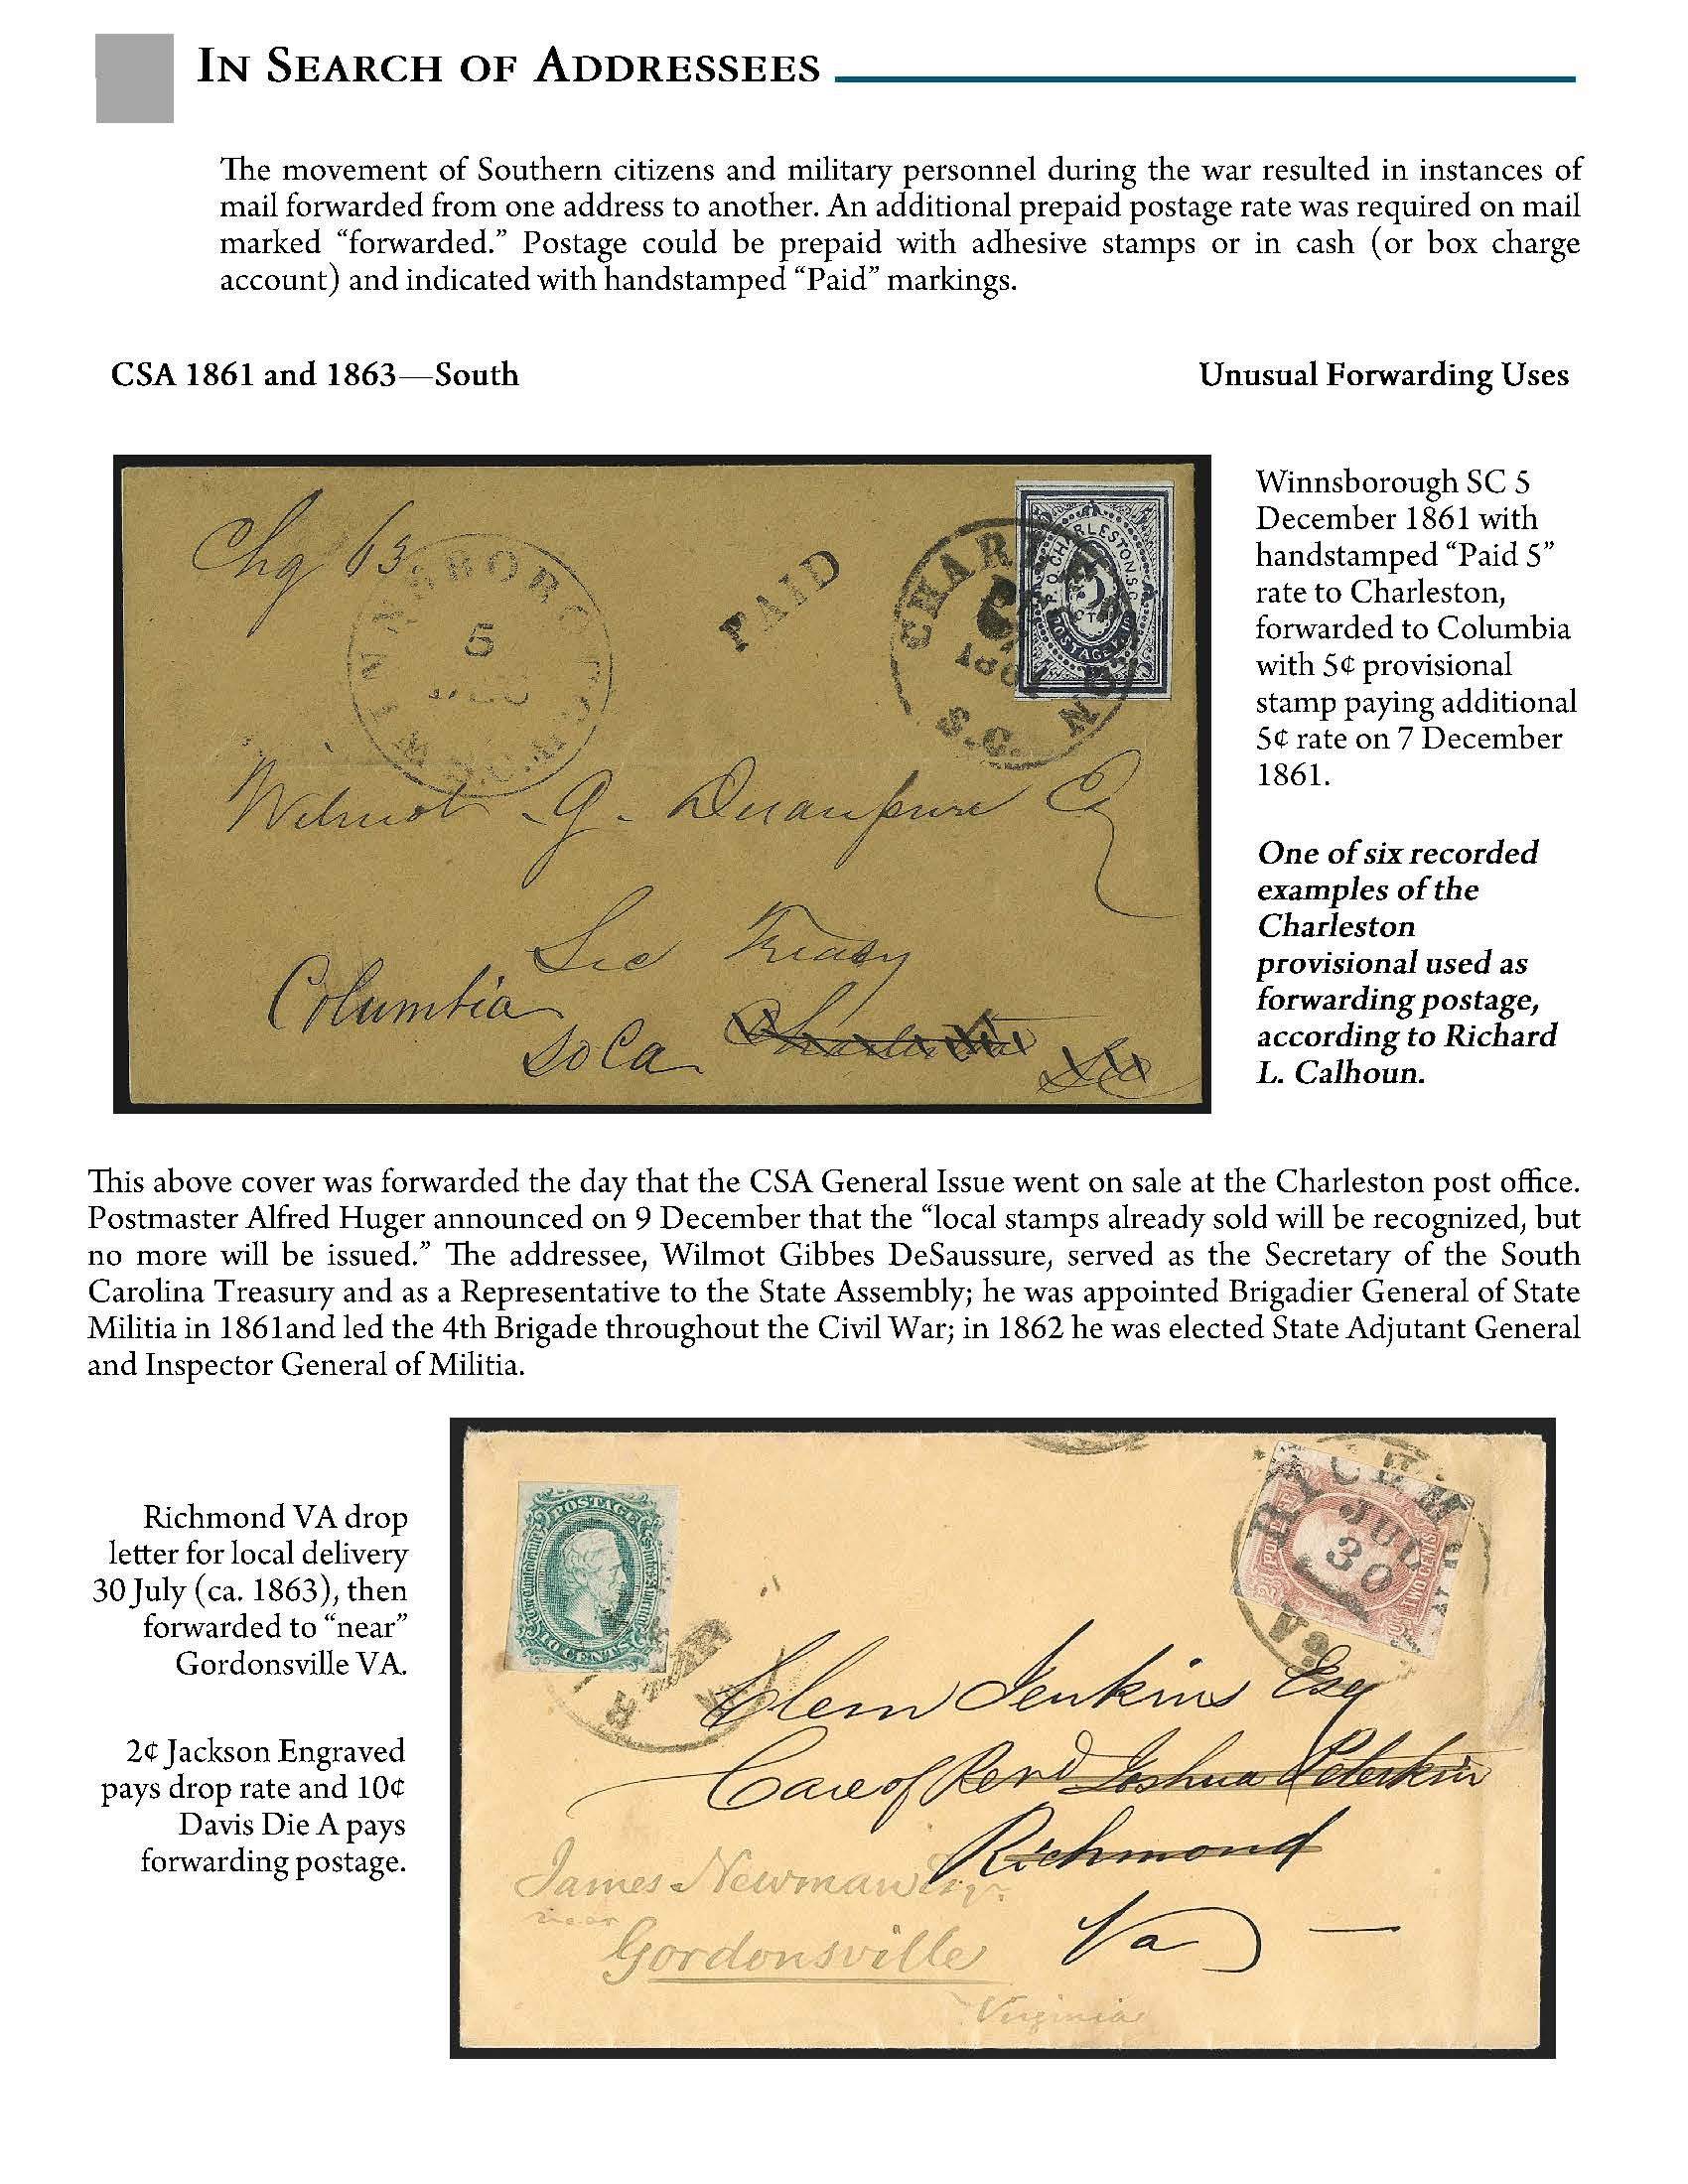 IN SEARCH OF ADDRESSEES
The movement of Southern citizens and military personnel during the war resulted in instances of
mail forwarded from one address to another. An additional prepaid postage rate was required on mail
marked “forwarded.” Postage could be prepaid with adhesive stamps or in cash (or box charge
account) and indicated with handstamped “Paid” markings.
CSA 1861 and 1863—South
Unusual Forwarding Uses
Chg 63
5
PAID
P.O. CHARLESTON S.C.
POSTAGE
S.C.
Wilmot G. DeSaussure Esq
Sec Treasy
Columbia
So Ca
Charleston
Winnsborough SC 5
December 1861 with
handstamped “Paid 5”
rate to Charleston,
forwarded to Columbia
with 5¢ provisional
stamp paying additional
5¢ rate on 7 December
1861.
One of six recorded
examples of the
Charleston
provisional used as
forwarding postage,
according to Richard
L. Calhoun.
This above cover was forwarded the day that the CSA General Issue went on sale at the Charleston post office.
Postmaster Alfred Huger announced on 9 December that the “local stamps already sold will be recognized, but
no more will be issued.” The addressee, Wilmot Gibbes DeSaussure, served as the Secretary of the South
Carolina Treasury and as a Representative to the State Assembly; he was appointed Brigadier General of State
Militia in 1861and led the 4th Brigade throughout the Civil War; in 1862 he was elected State Adjutant General
and Inspector General of Militia.
Richmond VA drop
letter for local delivery
30 July (ca. 1863), then
forwarded to “near”
Gordonsville VA.
2¢ Jackson Engraved
pays drop rate and 10¢
Davis Die A pays
forwarding postage.
POSTAGE
CENTS
JUL
30
Va.
TWO CENTS
Clem Jenkins Esq
Care of Revd Joshua Peterkin
Richmond
Va
James Newman Esqr.
near
Gordonsville
Virginia